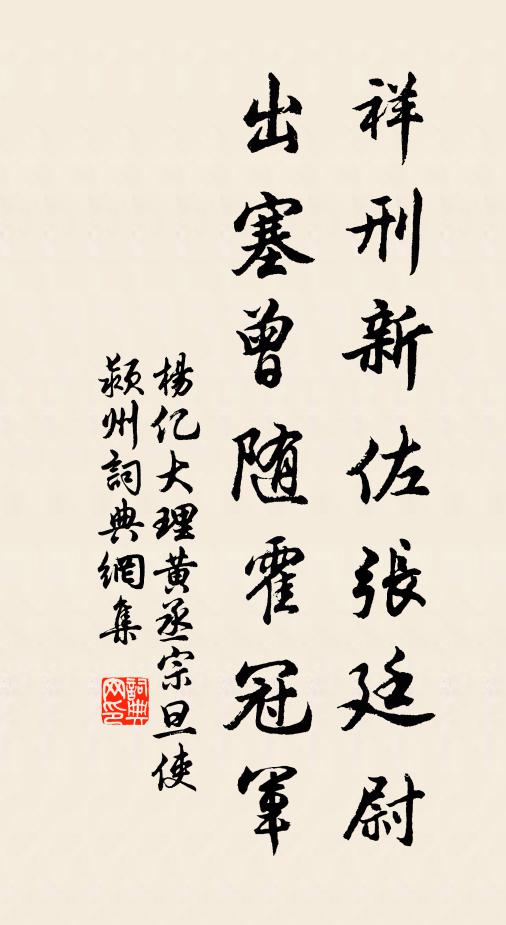 祥刑新佐張廷尉
出塞曾随霍冠軍
楊亿大理黄丞宗旦使
潁州詞典網集
詞典网印